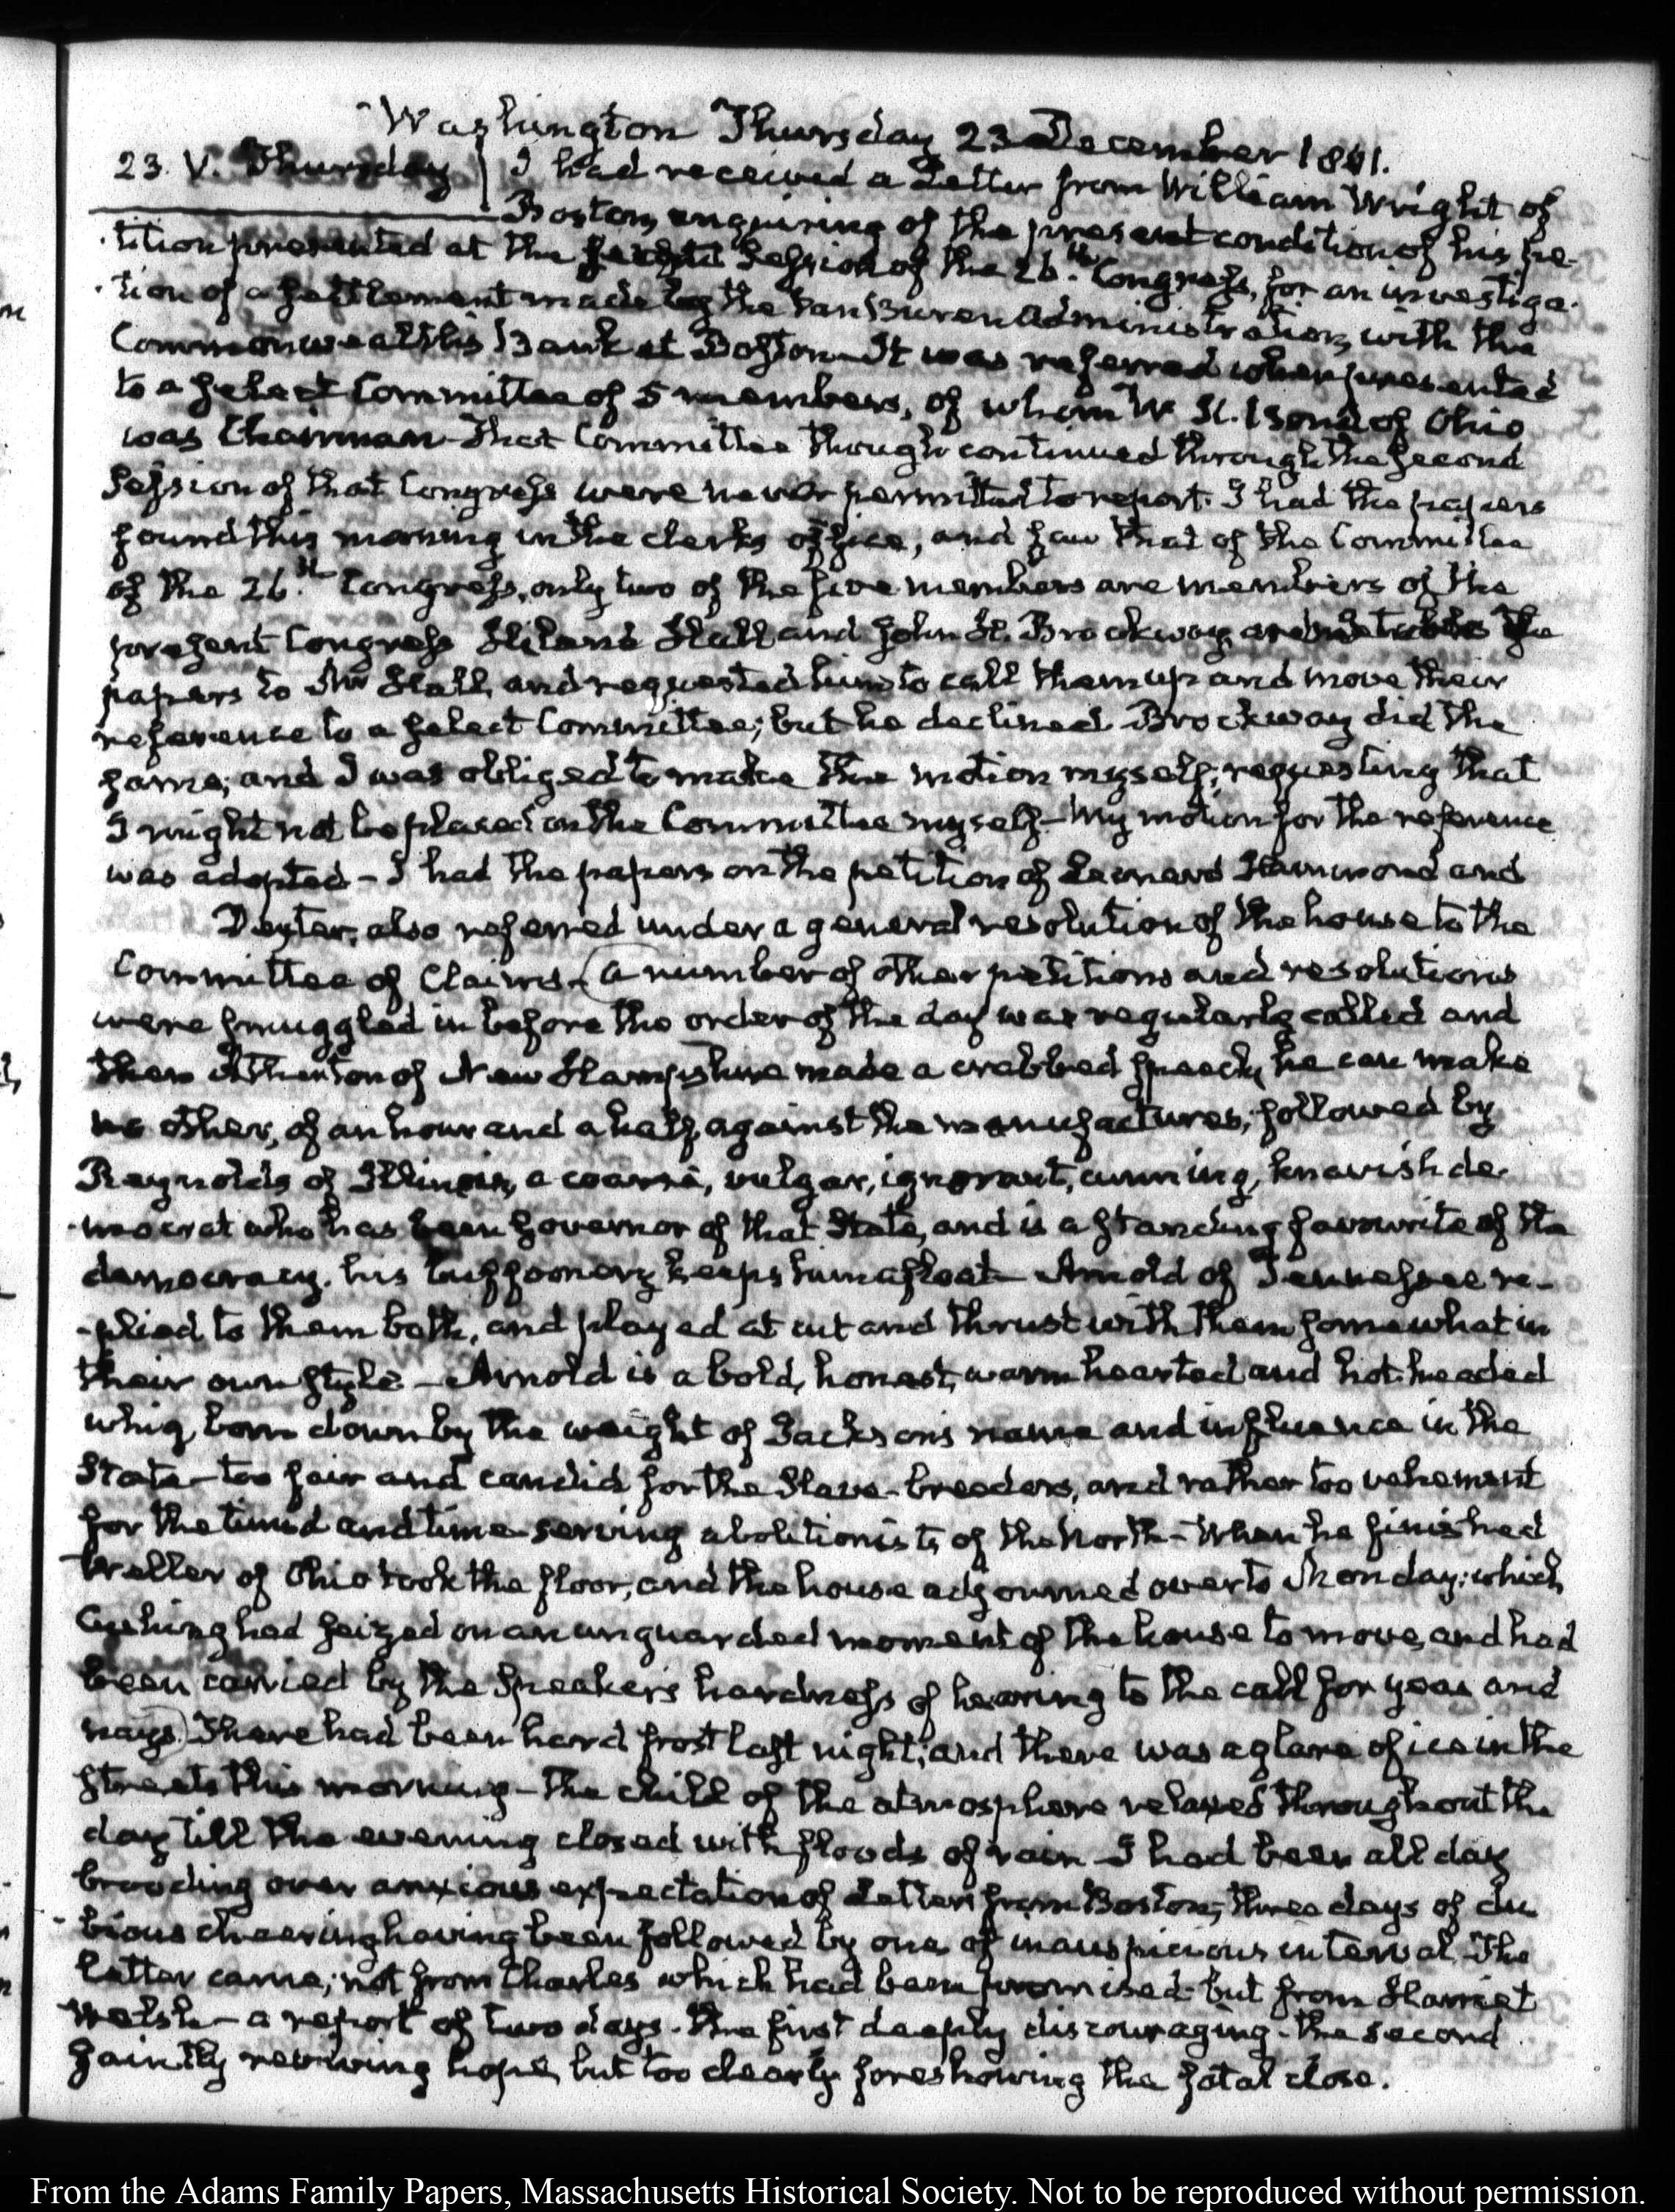 Washington Thursday 23 December 1841.
23. V. Thursday } I had received a Letter from William Wright of
Boston, enquiring of the present condition of his pe-
-tition presented at the Session of the 26.th Congress, for an investiga-
-tion of a settlement made by the Van Buren Administration, with the
Commonwealth's Bank at Boston. It was referred when presented
to a select Committee of 5 members, of whom W. K. Bond of Ohio
was Chairman. That Committee though continued through the second
Session of that Congress were never permitted to report. I had the papers
found this morning in the clerks office, and saw that of the Committee
of the 26.th Congress, only two of the five members are members of the
present Congress Hiland Hall and John H. Brockway, the
papers to Mr Hall, and requested him to call them up and move their
reference to a select Committee; but he declined. Brockway did the
same; and I was obliged to make the motion myself; requesting that
I might not be placed on the Committee myself. My motion for the reference
was adopted - I had the papers on the petition of Leonard Hammond and
Dexter, also referred under a general resolution of the house to the
Committee of Claims - (a number of other petitions and resolutions
were smuggled in before the order of the day was regularly called and
then Atherton of New Hampshire made a crabbed speech, he can make
no other, of an hour and a half, against the manufactures; followed by
Reynolds of Illinois, a coarse, vulgar, ignorant, cunning, knavish de-
-mocrat who has been Governor of that State, and is a standing favourite of the
democracy. his buffoonery keeps him afloat - Arnold of Tennessee re-
-plied to them both, and played at cut and thrust with them somewhat in
their own style - Arnold is a bold, honest, warm hearted and hot-headed
whig, born down by the weight of Jackson's name and influence in the
State - too fair and candid for the Slave-breeders, and rather too vehement
for the timid and time-serving abolitionists of the North - When he finished
Weller of Ohio took the floor, and the house adjourned over to Monday: which
Cushing had seized on an unguarded moment of the house to move, and had
been carried by the Speaker's hardness of hearing to the call for yeas and
nays) There had been hard frost last night; and there was a glare of ice in the
streets this morning - the chill of the atmosphere relaxed throughout the
day till the evening closed with floods of rain - I had been all day
brooding over anxious expectation of Letters from Boston; three days of du-
-bious cheering having been followed by one of inauspicious interval. The
letter came; not from Charles which had been promised - but from Harriet
Welsh - a report of two days. the first deeply discouraging - the second
faintly reviving hope, but too clearly foreshowing the fatal close.
From the Adams Family Papers, Massachusetts Historical Society. Not to be reproduced without permission.